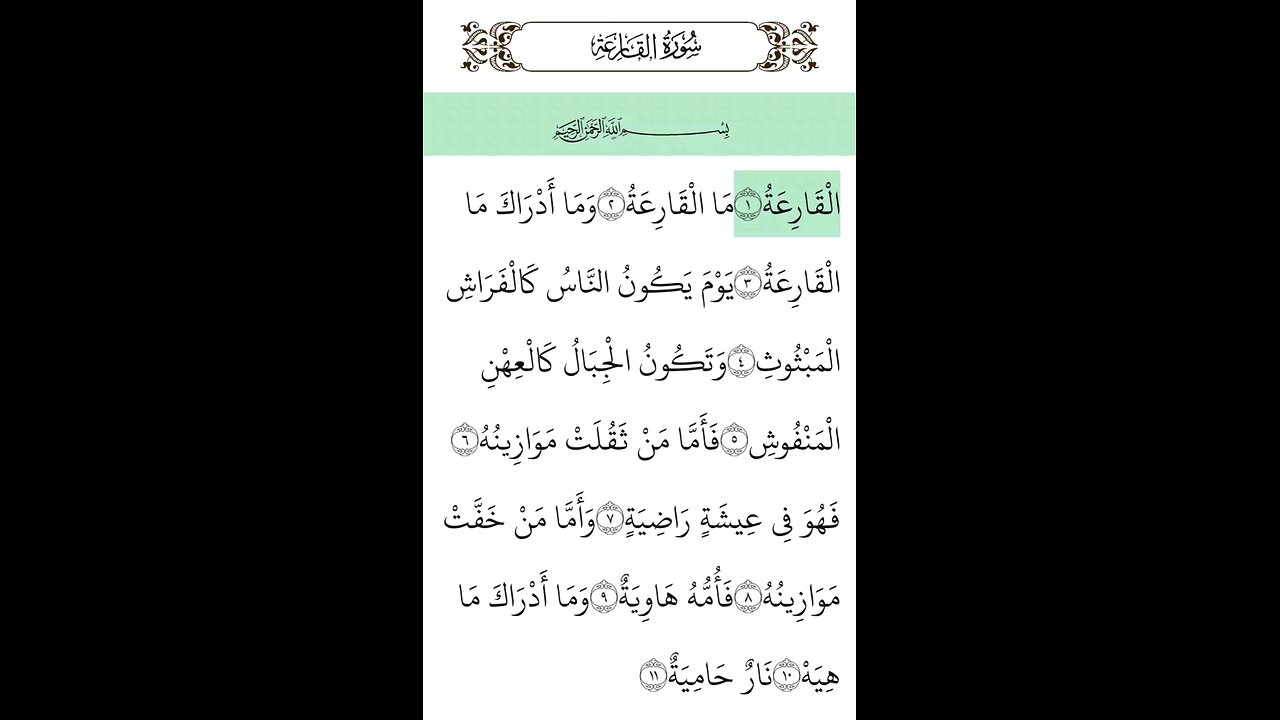 سُورَةُ القَارِعَةِ
بِسْمِ اللَّهِ الرَّحْمَٰنِ الرَّحِيمِ
الْقَارِعَةُ ١ مَا الْقَارِعَةُ ٢ وَمَا أَدْرَاكَ مَا
الْقَارِعَةُ ٣ يَوْمَ يَكُونُ النَّاسُ كَالْفَرَاشِ
الْمَبْثُوثِ ٤ وَتَكُونُ الْجِبَالُ كَالْعِهْنِ
الْمَنْفُوشِ ٥ فَأَمَّا مَنْ ثَقُلَتْ مَوَازِينُهُ ٦
فَهُوَ فِي عِيشَةٍ رَاضِيَةٍ ٧ وَأَمَّا مَنْ خَفَّتْ
مَوَازِينُهُ ٨ فَأُمُّهُ هَاوِيَةٌ ٩ وَمَا أَدْرَاكَ مَا
هِيَهْ ١٠ نَارٌ حَامِيَةٌ ١١